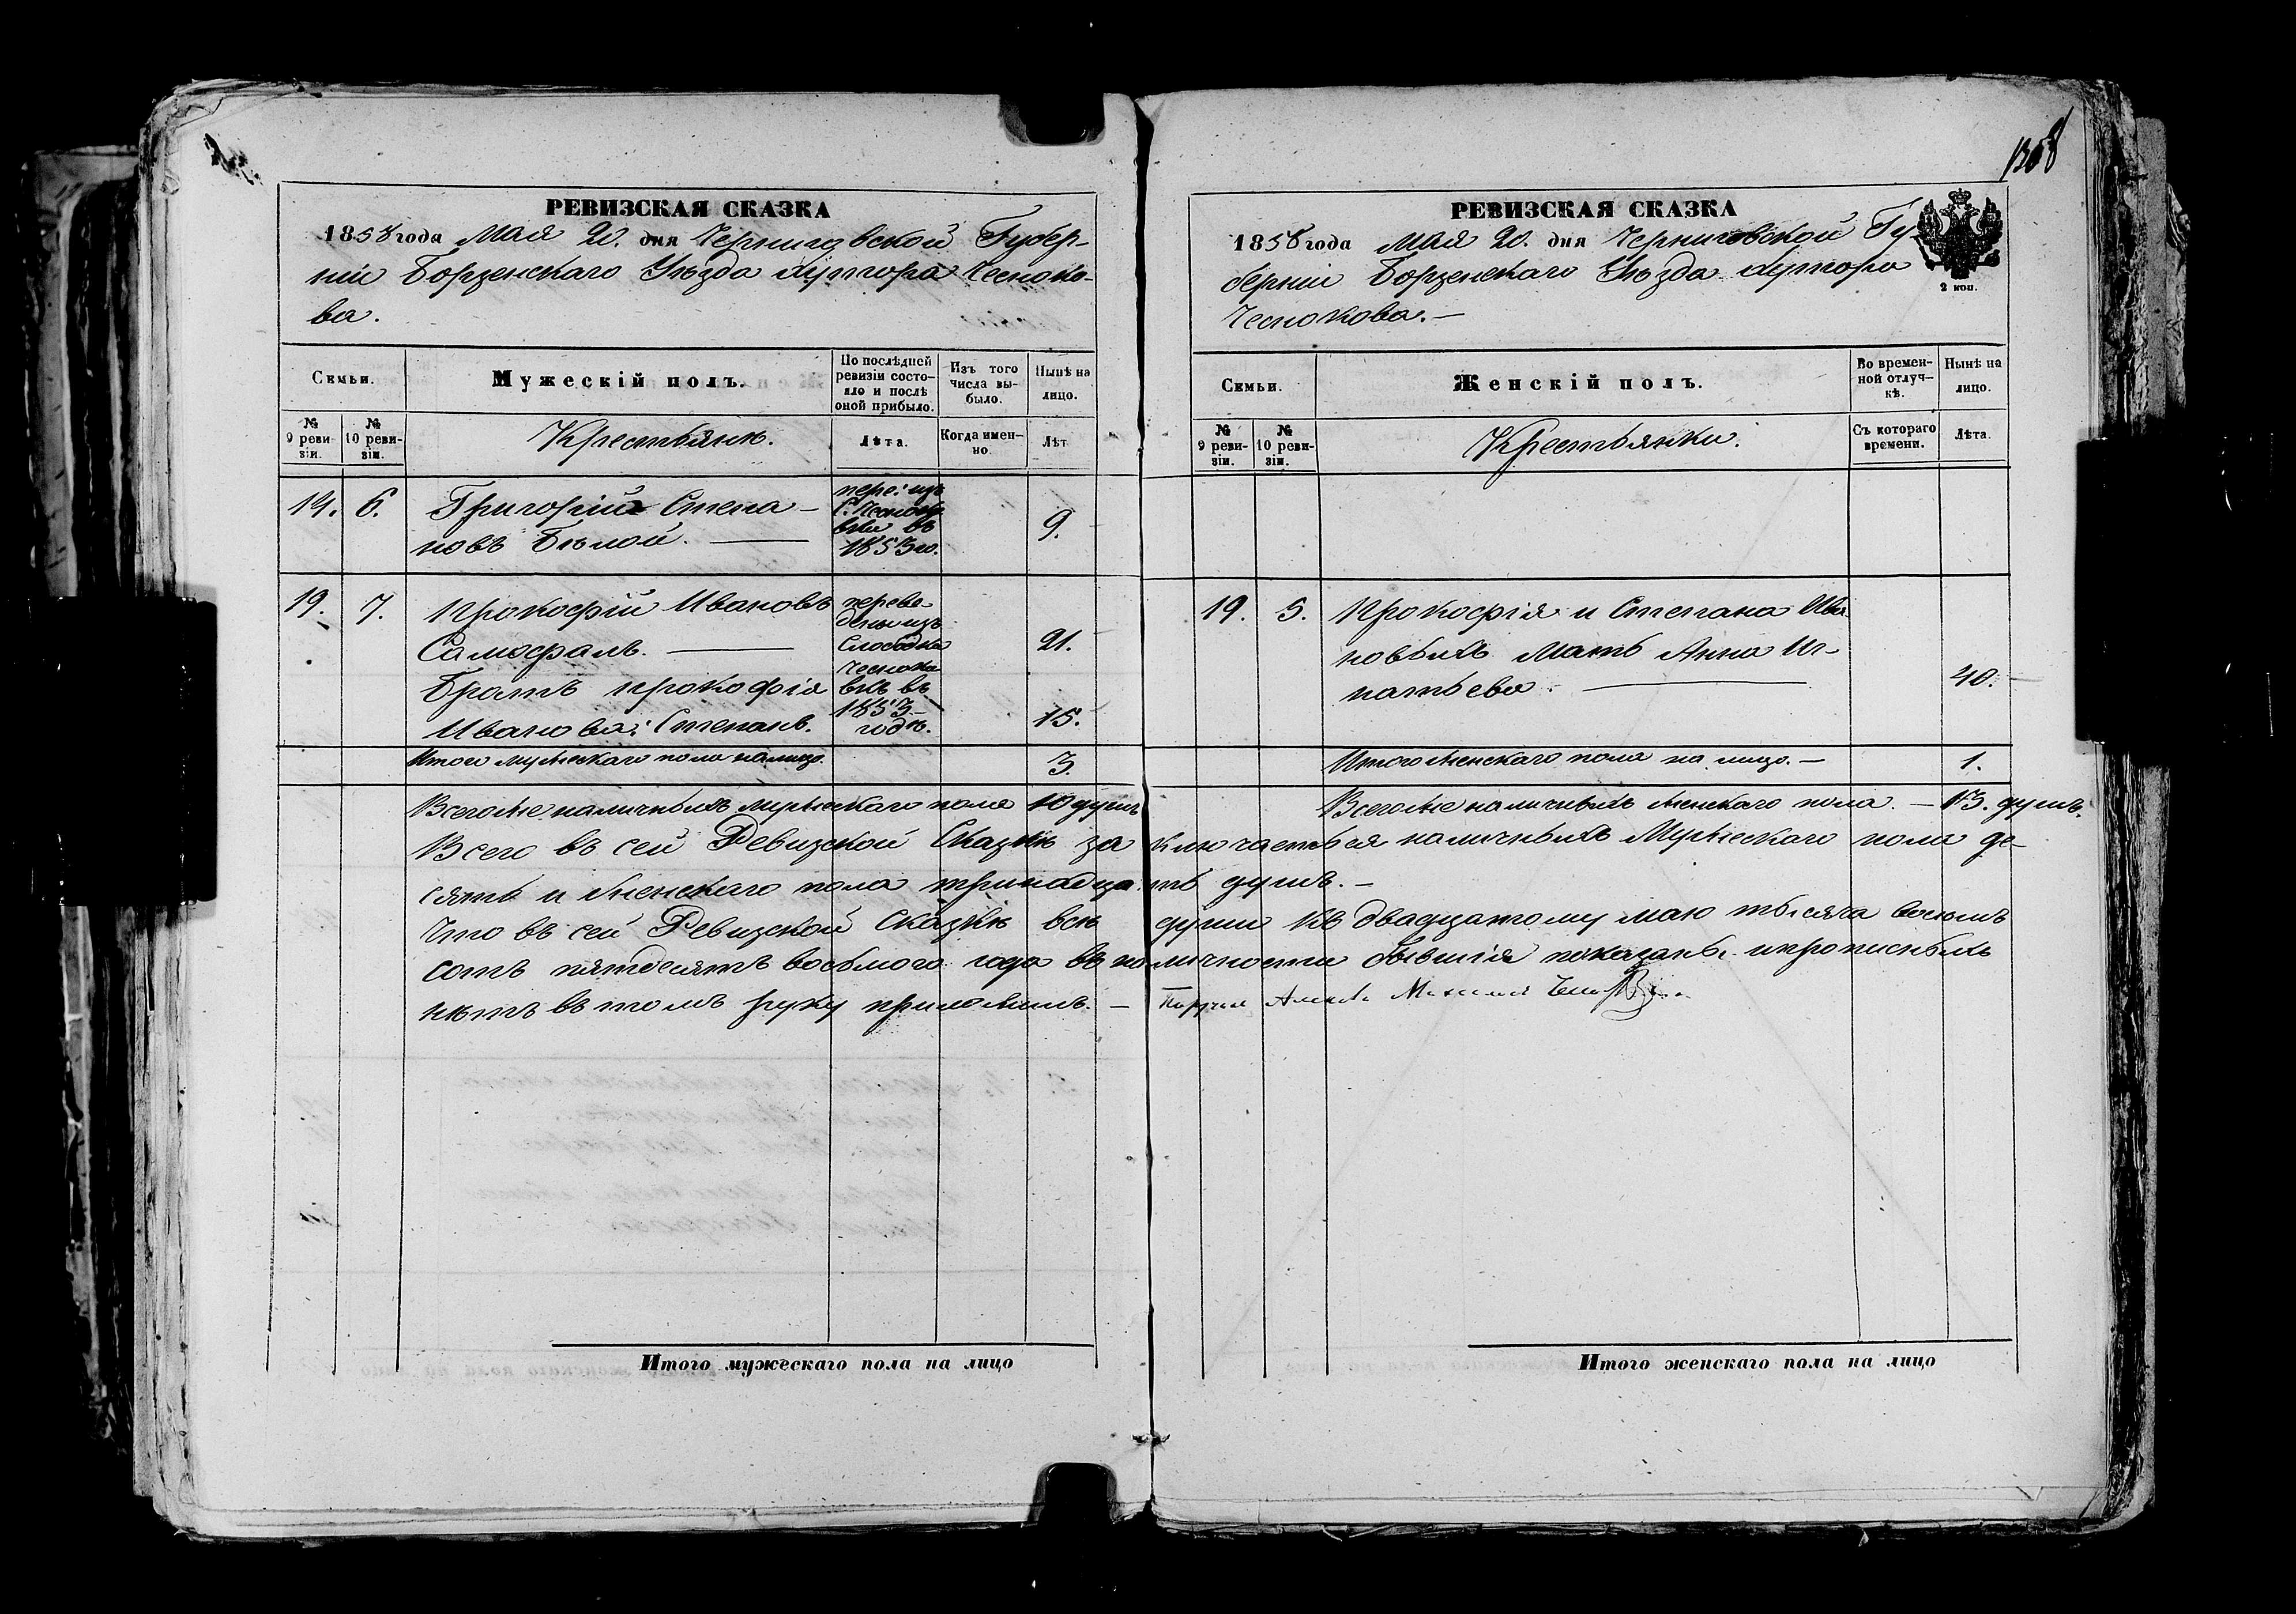 1308
РЕВИЗСКАЯ СКАЗКА
1858 года Мая 20. дня Черниговской Губер-
ніи Борзенскаго Уѣзда Хутора Чесноко-
ва.
Семьи.
Мужескій полъ.
По послѣдней ревизіи состо-яло и послѣ оной прибыло.
Изъ того числа вы-было.
Нынѣ на лицо.
№ 9 реви-зіи.
№ 10 реви-зіи.
Крестьяне.
Лѣта.
Когда имен-но.
Лѣт
14. 6. Григорій Степа- пере: изъ
новъ Бѣлой. — С. Чесноков
вки въ 9.
1853 го.
19. 7. Прокофій Ивановъ переве-
Самофалъ. — дены изъ 21.
Слободки
Чесноко
Братъ Прокофія вкѣ въ
Иванова: Степанъ. 1853- 15.
годѣ.
Итого мужескаго пола налицо. 3.
Всего же наличныхъ мужескаго пола 10 душъ
РЕВИЗСКАЯ СКАЗКА
1858 года Мая 20. дня Черниговской Гу-
берніи Борзенскаго Уѣзда Хутора
Чеснокова. —
2 коп.
Семьи.
Женскій полъ.
Во времен-ной отлуч-кѣ.
Нынѣ на лицо.
№ 9 реви-зіи.
№ 10 реви-зіи.
Крестьянки.
Съ котораго времени.
Лѣта.
19. 5. Прокофія и Степана Ива
новыхъ Мать Анна Иг-
натьева. — 40.
Итого женскаго пола на лицо. — 1.
Всего же наличныхъ женскаго пола. — 13. душъ.
Всего въ сей Ревизской Сказкѣ заключаеться наличныхъ Мужескаго пола де-
сять и женскаго пола тринадцать душъ. —
Что въ сей Ревизской Сказкѣ всѣ души къ двадцатому маю тысяча восемь
сотъ пятдесятъ восьмого года въ наличности бывшія показаны и прописныхъ
нѣтъ въ томъ руку приложилъ. —
Итого мужескаго пола на лицо
Итого женскаго пола на лицо